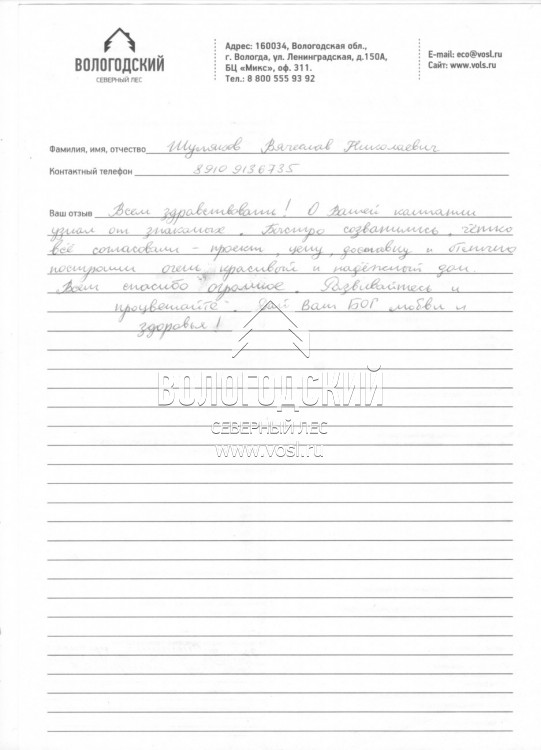 ВОЛОГОДСКИЙ
СЕВЕРНЫЙ ЛЕС
Адрес: 160034, Вологодская обл.,
г. Вологда, ул. Ленинградская, д.150А,
БЦ «Микс», оф. 311.
Тел.: 8 800 555 93 92
E-mail: eco@vosl.ru
Сайт: www.vols.ru
Фамилия, имя, отчество Шуляков Вячеслав Николаевич
Контактный телефон 89109136735
Ваш отзыв Всем здравствовать! О Вашей компании
узнал от знакомых. Быстро созвонились, чётко
всё согласовали - проект, цену, доставку и отлично
построили очень красивый и надёжный дом.
Всем спасибо огромное. Развивайтесь и
процветайте. Дай Вам БОГ любви и
здоровья!
ВОЛОГОДСКИЙ
СЕВЕРНЫЙ ЛЕС
www.vosl.ru